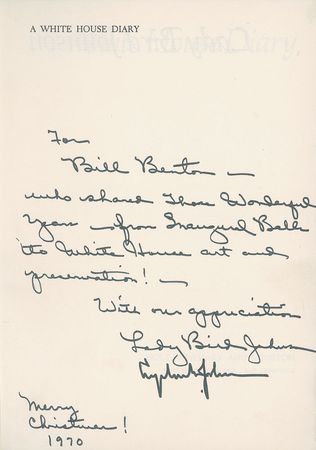 A WHITE HOUSE DIARY
For
Bill Benton —
who shared those Wonderful
Years — from Inaugural Balls
to White House art and
preservation! —
With our appreciation
Lady Bird Johnson
Lyndon B. Johnson
Merry
Christmas!
1970